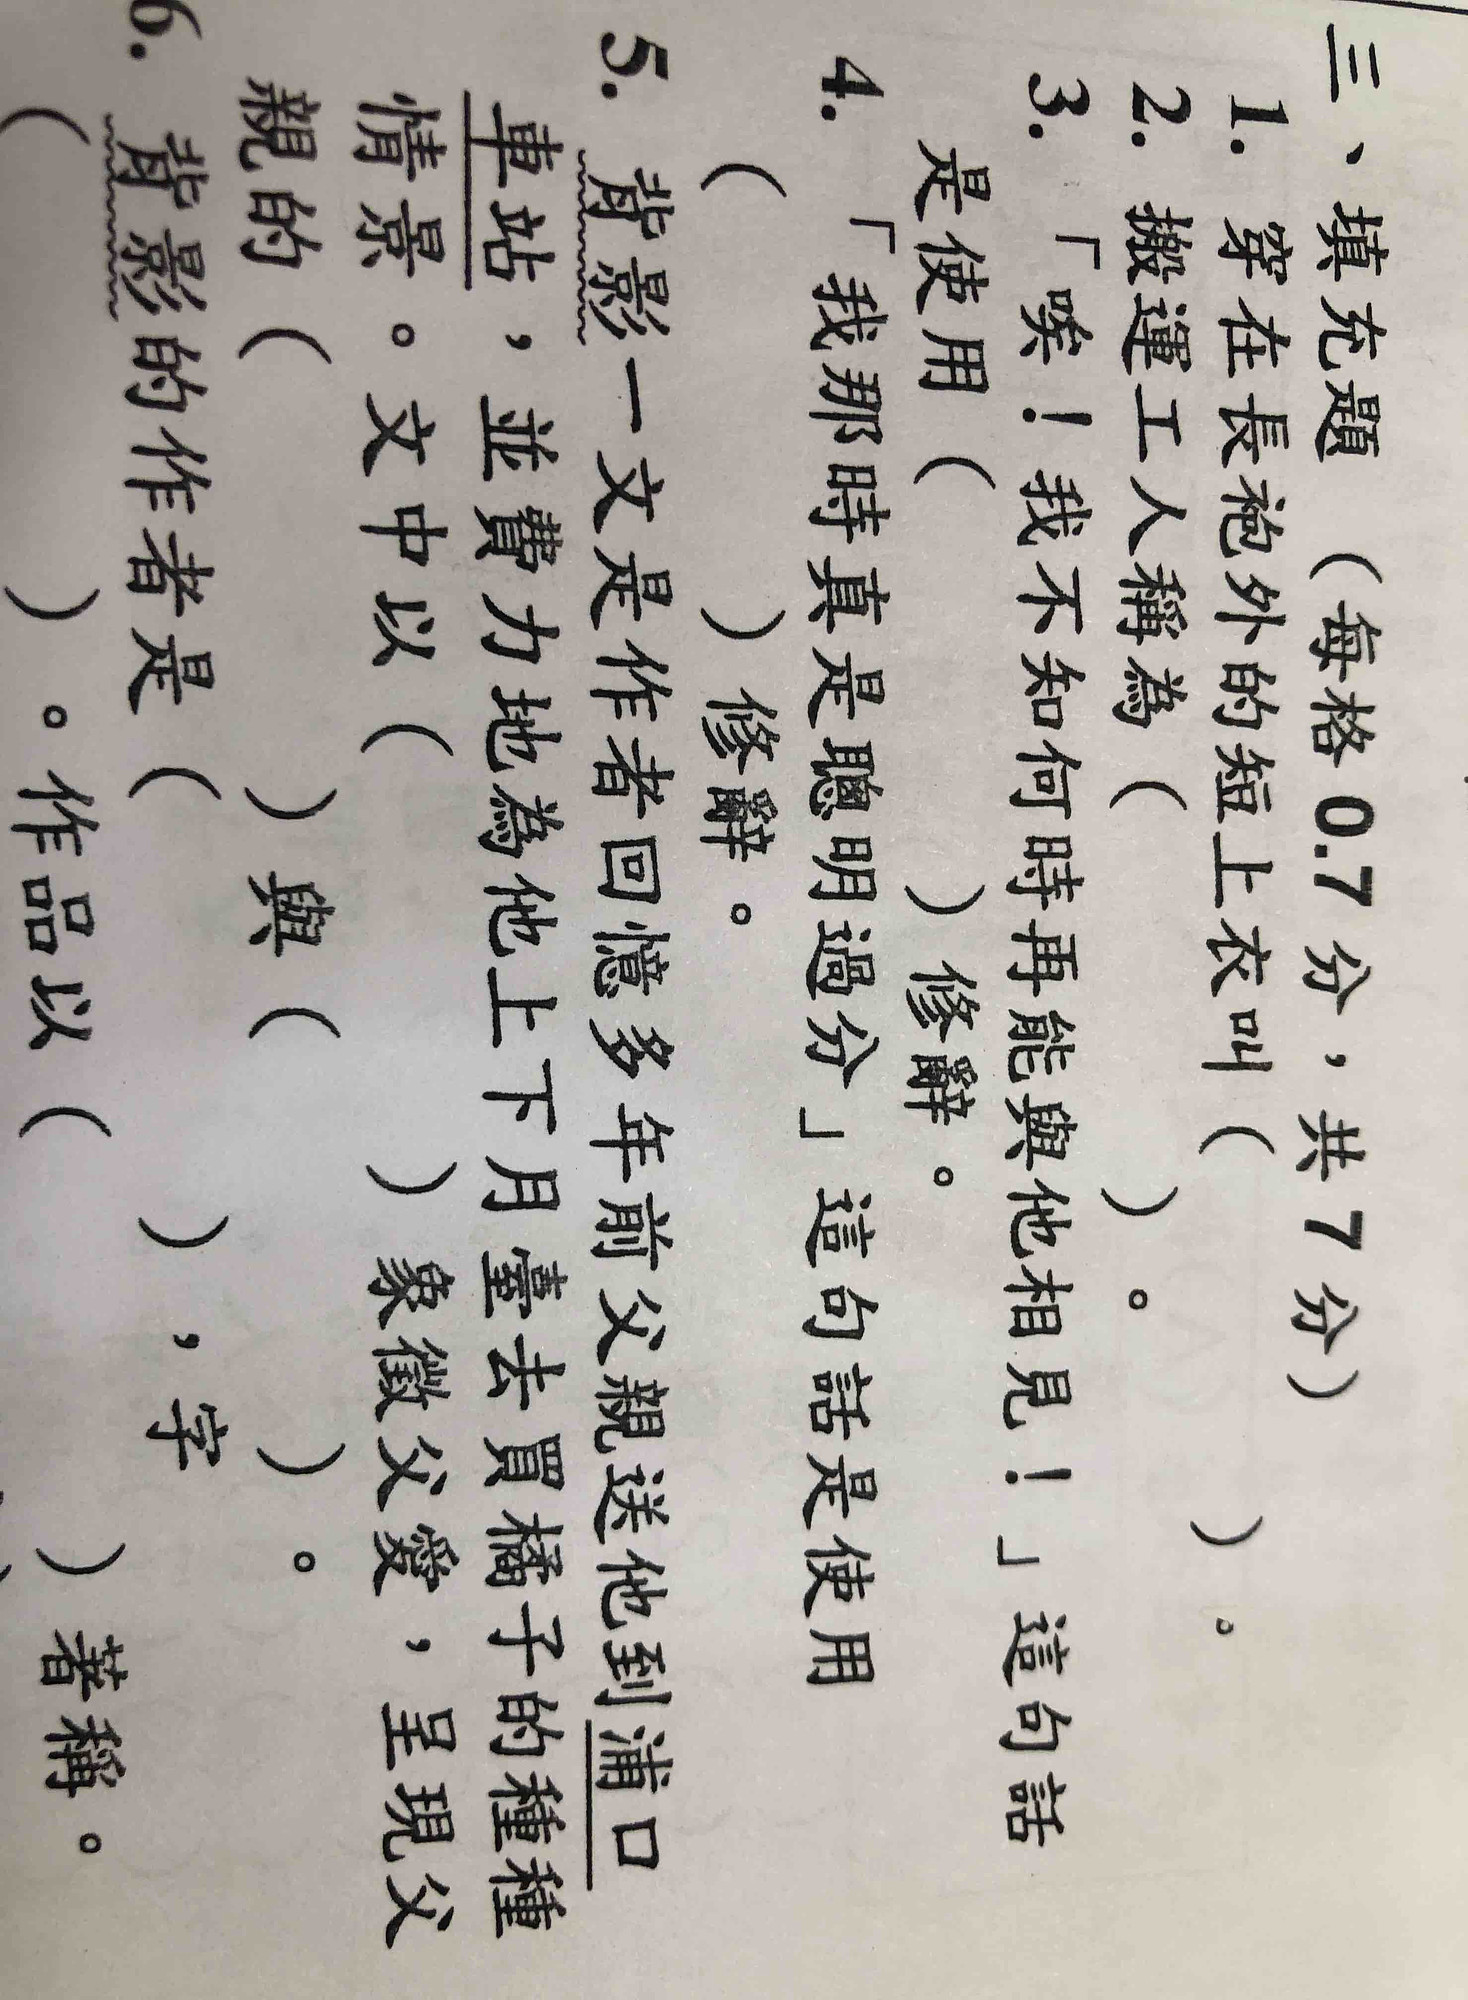 三、填充題（每格 0.7 分，共 7 分）
1. 穿在長袍外的短上衣叫（　　　）。
2. 搬運工人稱為（　　　）。
3. 「唉！我不知何時再能與他相見！」這句話
是使用（　　　）修辭。
4. 「我那時真是聰明過分」這句話是使用
（　　　）修辭。
5. 背影一文是作者回憶多年前父親送他到浦口
車站，並費力地為他上下月臺去買橘子的種種
情景。文中以（　　　）象徵父愛，呈現父
親的（　　　）與（　　　）。
6. 背影的作者是（　　　），字
（　　　）。作品以（　　　）著稱。